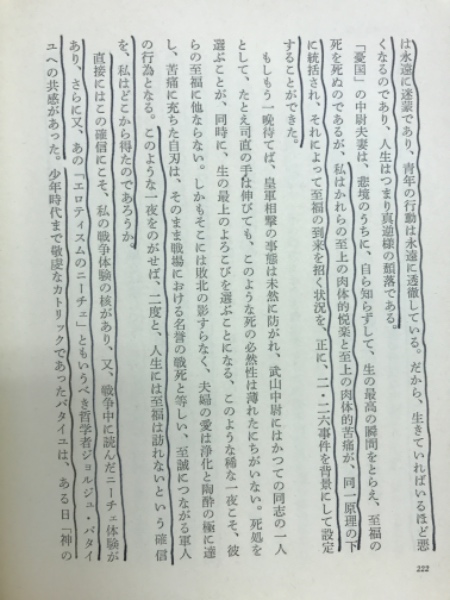 は永遠に迷蒙であり、青年の行動は永遠に透徹している。だから、生きていればいるほど悪
くなるのであり、人生はつまり真逆様の頽落である。
「憂国」の中尉夫妻は、悲境のうちに、自ら知らずして、生の最高の瞬間をとらえ、至福の
死を死ぬのであるが、私はかれらの至上の肉体的悦楽と至上の肉体的苦痛が、同一原理の下
に統括され、それによって至福の到来を招く状況を、正に、二・二六事件を背景にして設定
することができた。
もしもう一晩待てば、皇軍相撃の事態は未然に防がれ、武山中尉にはかつての同志の一人
として、たとえ司直の手は伸びても、このような死の必然性は薄れたにちがいない。死処を
選ぶことが、同時に、生の最上のよろこびを選ぶことになる、このような稀な一夜こそ、彼
らの至福に他ならない。しかもそこには敗北の影すらなく、夫婦の愛は浄化と陶酔の極に達
し、苦痛に充ちた自刃は、そのまま戦場における名誉の戦死と等しい、至誠につながる軍人
の行為となる。このような一夜をのがせば、二度と、人生には至福は訪れないという確信
を、私はどこから得たのであろうか。
直接にはこの確信にこそ、私の戦争体験の核があり、又、戦争中に読んだニーチェ体験が
あり、さらに又、あの「エロティスムのニーチェ」ともいうべき哲学者ジョルジュ・バタイ
ユへの共感があった。少年時代まで敬虔なカトリックであったバタイユは、ある日「神の
222